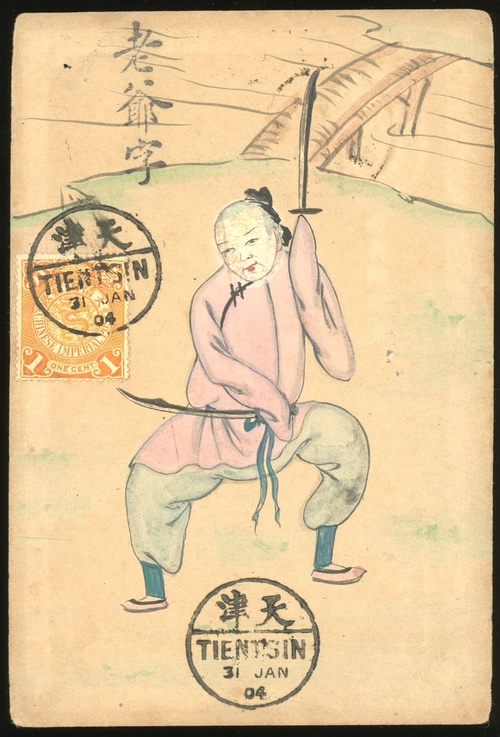 老爺字
天津
TIENTSIN
31 JAN
04
CHINESE IMPERIAL
1 ONE CENT 1
天津
TIENTSIN
31 JAN
04